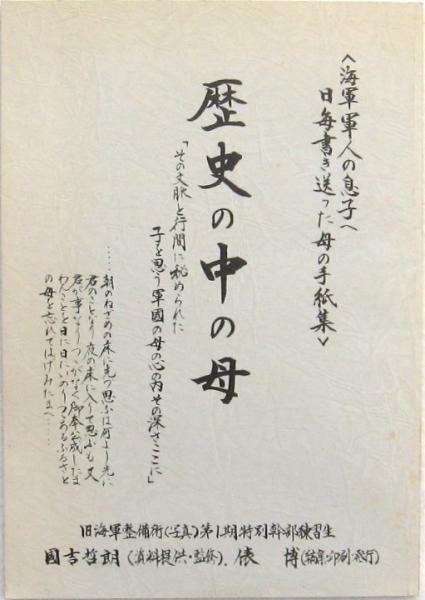 <海軍軍人の息子へ
日毎書き送った母の手紙集>
歴史の中の母
「その文脈と行間に秘められた
子を思う軍國の母の心の内その深さここに」
……朝のねざめの床に先づ思ふは何より先に
君のことなり夜の床に入りて思ふも又
君が事なりつゝがなく御奉公成したま
わんことを日に日にいのりつゝあるふるさと
の母を忘れてはげみたまへ……
旧海軍整備術(写真)第1期特別幹部練習生
國吉哲朗(資料提供・監修).俵 博(編集・印刷・発行)